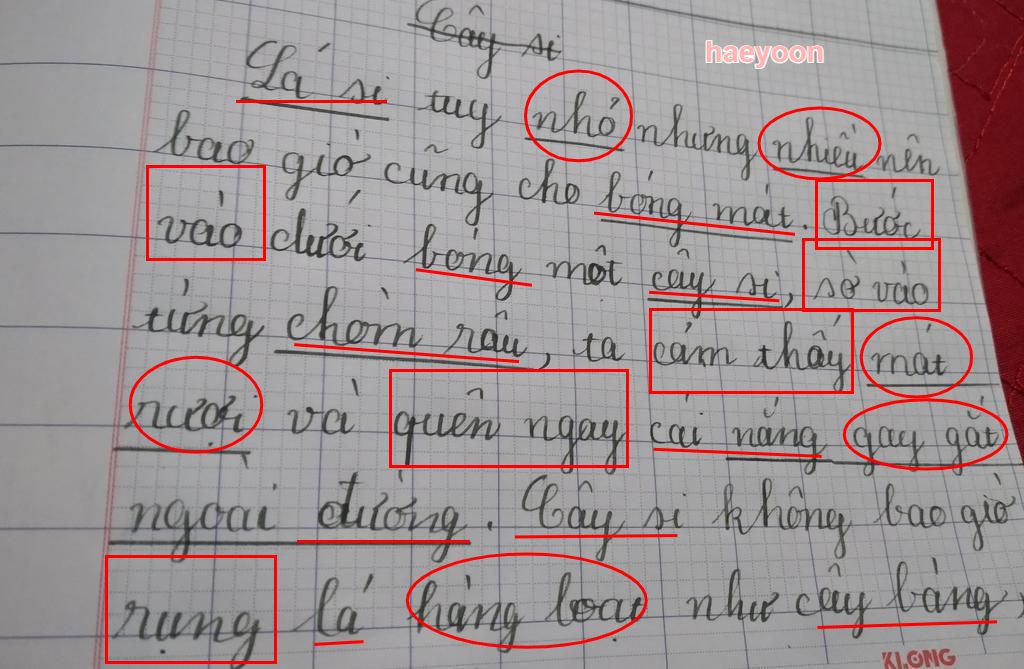 Cây si
haeyoon
Lá si tuy nhỏ nhưng nhiều nên
bao giờ cũng cho bóng mát. Bước
vào dưới bóng một cây si, sờ vào
từng chòm râu, ta cảm thấy mát
rượi và quên ngay cái nắng gay gắt
ngoài đường. Cây si không bao giờ
rụng lá hàng loạt như cây bàng,
KLONG